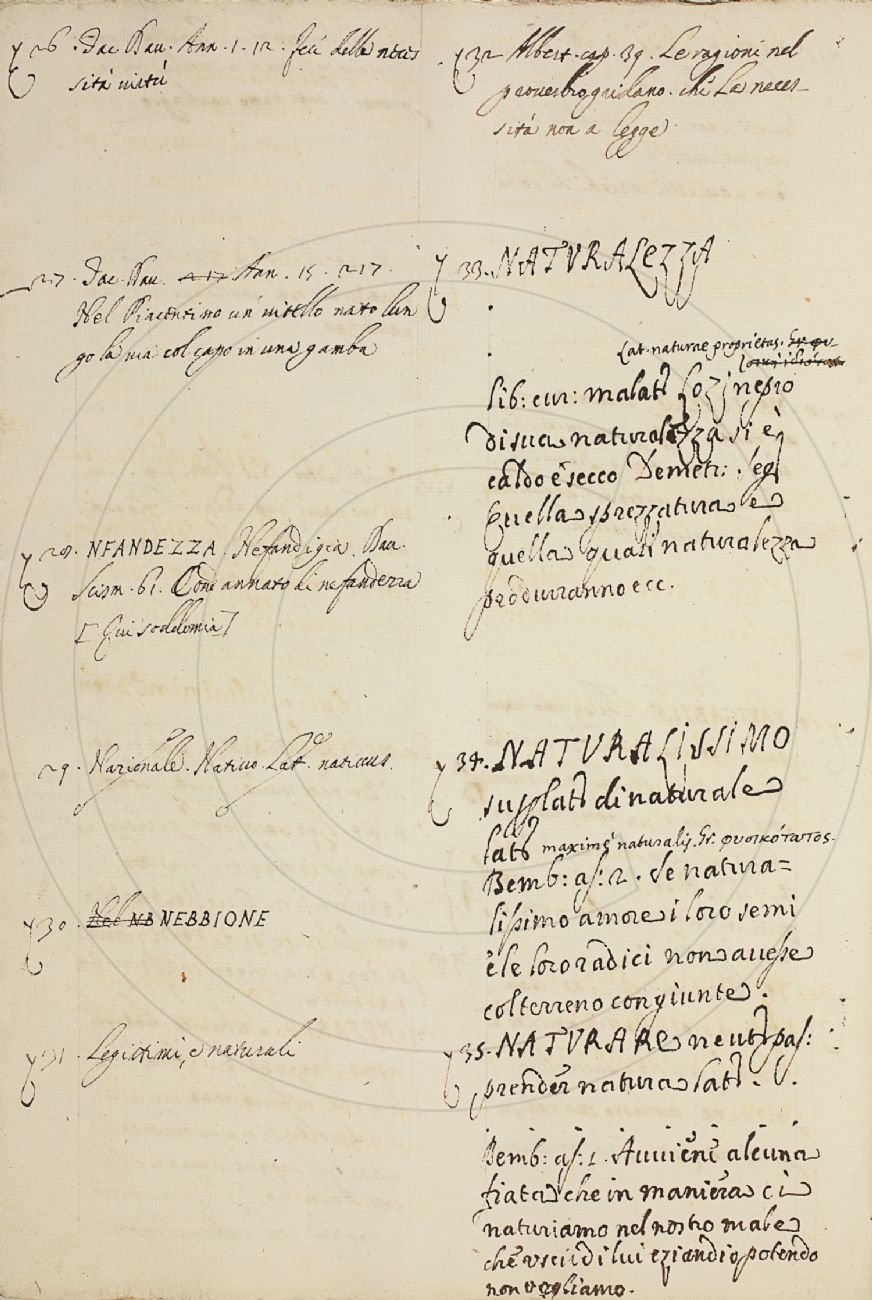 26. Dav. Ann. 1. 12. fea della neces
sità virtù
27. Dav. Ann. 15. 217.
Nel Piacentino un vitello nato lun
go la via col capo in una gamba
28. NFANDEZZA. Nefandigia. Dav.
Scism. 61. Condannato di nefandezza
[Qui soddomia]
29. Nazionale. Nativo. Lat. nativus.
30. NEBBIONE
31. Legittimi, e naturali
32 Albert. cap. 39. Le ragioni nel
proverbio gridano. che La neces-
sità non a legge
33. NATVRALEZZA
Lat. naturae proprietas.
lib: cur: malat: nesso
di sua naturalezza si è
caldo è secco Demetr: Seg:
Quella sprezzatura e
quella quasi naturalezza
produrranno ecc.
34. NATVRALISSIMO
suplat: di naturale
lat: maximè naturalis. Gr. φυσικότατος.
Bemb: as: 2. Se natura=
lissimo amore i loro semi
è le loro radici non avesse
col terreno congiunte.
35. NATVRARE neut: pas:
prender natura lat: . .
Bemb: as: 1. Avviene alcuna
fiata che in maniera ci
naturiamo nel nostro male
che uscir di lui eziandio potendo
non vogliamo.